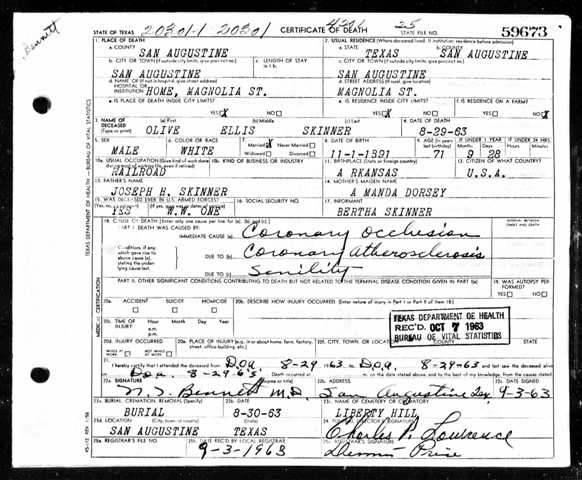 Bennett
STATE OF TEXAS 20301-1 20301 CERTIFICATE OF DEATH 25 STATE FILE NO. 59673
1. PLACE OF DEATH 2. USUAL RESIDENCE (Where deceased lived. If institution: residence before admission)
a. COUNTY a. STATE b. COUNTY
SAN AUGUSTINE TEXAS SAN AUGUSTINE
b. CITY OR TOWN (If outside city limits, give precinct no.) c. LENGTH OF STAY in 1 b. c. CITY OR TOWN (If outside city limits, give precinct no.)
SAN AUGUSTINE SAN AUGUSTINE
d. NAME OF (If not in hospital, give street address) HOSPITAL OR INSTITUTION d. STREET ADDRESS
HOME, MAGNOLIA ST. MAGNOLIA ST.
e. IS PLACE OF DEATH INSIDE CITY LIMITS? e. IS RESIDENCE INSIDE CITY LIMITS? f. IS RESIDENCE ON A FARM?
YES X NO YES X NO YES NO X
3. NAME OF DECEASED (Type or print) (a) First (b) Middle (c) Last 4. DATE OF DEATH
OLIVE ELLIS SKINNER 8-29-63
5. SEX 6. COLOR OR RACE 7. Married X Never Married Widowed Divorced 8. DATE OF BIRTH 9. AGE IF UNDER 1 YEAR IF UNDER 24 HRS.
MALE WHITE 11-1-1891 71 9 28
10a. USUAL OCCUPATION 10b. KIND OF BUSINESS OR INDUSTRY 11. BIRTHPLACE (State or foreign country) 12. CITIZEN OF WHAT COUNTRY?
RAILROAD ARKANSAS U.S.A.
13. FATHER'S NAME 14. MOTHER'S MAIDEN NAME
JOSEPH H. SKINNER AMANDA DORSEY
15. WAS DECEASED EVER IN U.S. ARMED FORCES? 16. SOCIAL SECURITY NO. 17. INFORMANT
YES W.W. ONE BERTHA SKINNER
18. CAUSE OF DEATH [Enter only one cause per line for (a), (b) and (c).]
PART I. DEATH WAS CAUSED BY: IMMEDIATE CAUSE (a) Coronary Occlusion
Conditions, if any, which gave rise to above cause (a), stating the underlying cause last. DUE TO (b) Coronary Atherosclerosis
DUE TO (c) Senility
PART II. OTHER SIGNIFICANT CONDITIONS CONTRIBUTING TO DEATH BUT NOT RELATED TO THE TERMINAL DISEASE CONDITION GIVEN IN PART I (a) 19. WAS AUTOPSY PERFORMED?
YES NO
20a. ACCIDENT SUICIDE HOMICIDE 20b. DESCRIBE HOW INJURY OCCURRED. (Enter nature of injury in Part I or Part II of item 18.)
20c. TIME OF INJURY Hour Month Day Year a.m. p.m.
TEXAS DEPARTMENT OF HEALTH
REC'D OCT 7 1963
BUREAU OF VITAL STATISTICS
20d. INJURY OCCURRED 20e. PLACE OF INJURY (e.g., in or about home, farm, factory, street, office building, etc.) 20f. CITY, TOWN, OR LOCATION COUNTY
21. I hereby certify that I attended the deceased from D.O.A. 8-29-63 D.O.A. 8-29-63 and last saw the deceased alive
D.O.A. 8-29-63 Death occurred at m. on the date stated above, and to the best of my knowledge, from the causes stated.
22a. SIGNATURE 22b. ADDRESS 22c. DATE SIGNED
Bennett M.D. San Augustine Tex. 9-3-63
23a. BURIAL, CREMATION, REMOVAL (Specify) 23b. DATE 23c. NAME OF CEMETERY OR CREMATORY
BURIAL 8-30-63 LIBERTY HILL
23d. LOCATION (City, town, or county) (State) 24. FUNERAL DIRECTOR'S SIGNATURE
SAN AUGUSTINE TEXAS Charles P. Lawrence
25a. REGISTRAR'S FILE NO. 25b. DATE REC'D BY LOCAL REGISTRAR 25c. REGISTRAR'S SIGNATURE
9-3-1963 Price
TEXAS DEPARTMENT OF HEALTH — BUREAU OF VITAL STATISTICS
MEDICAL CERTIFICATION